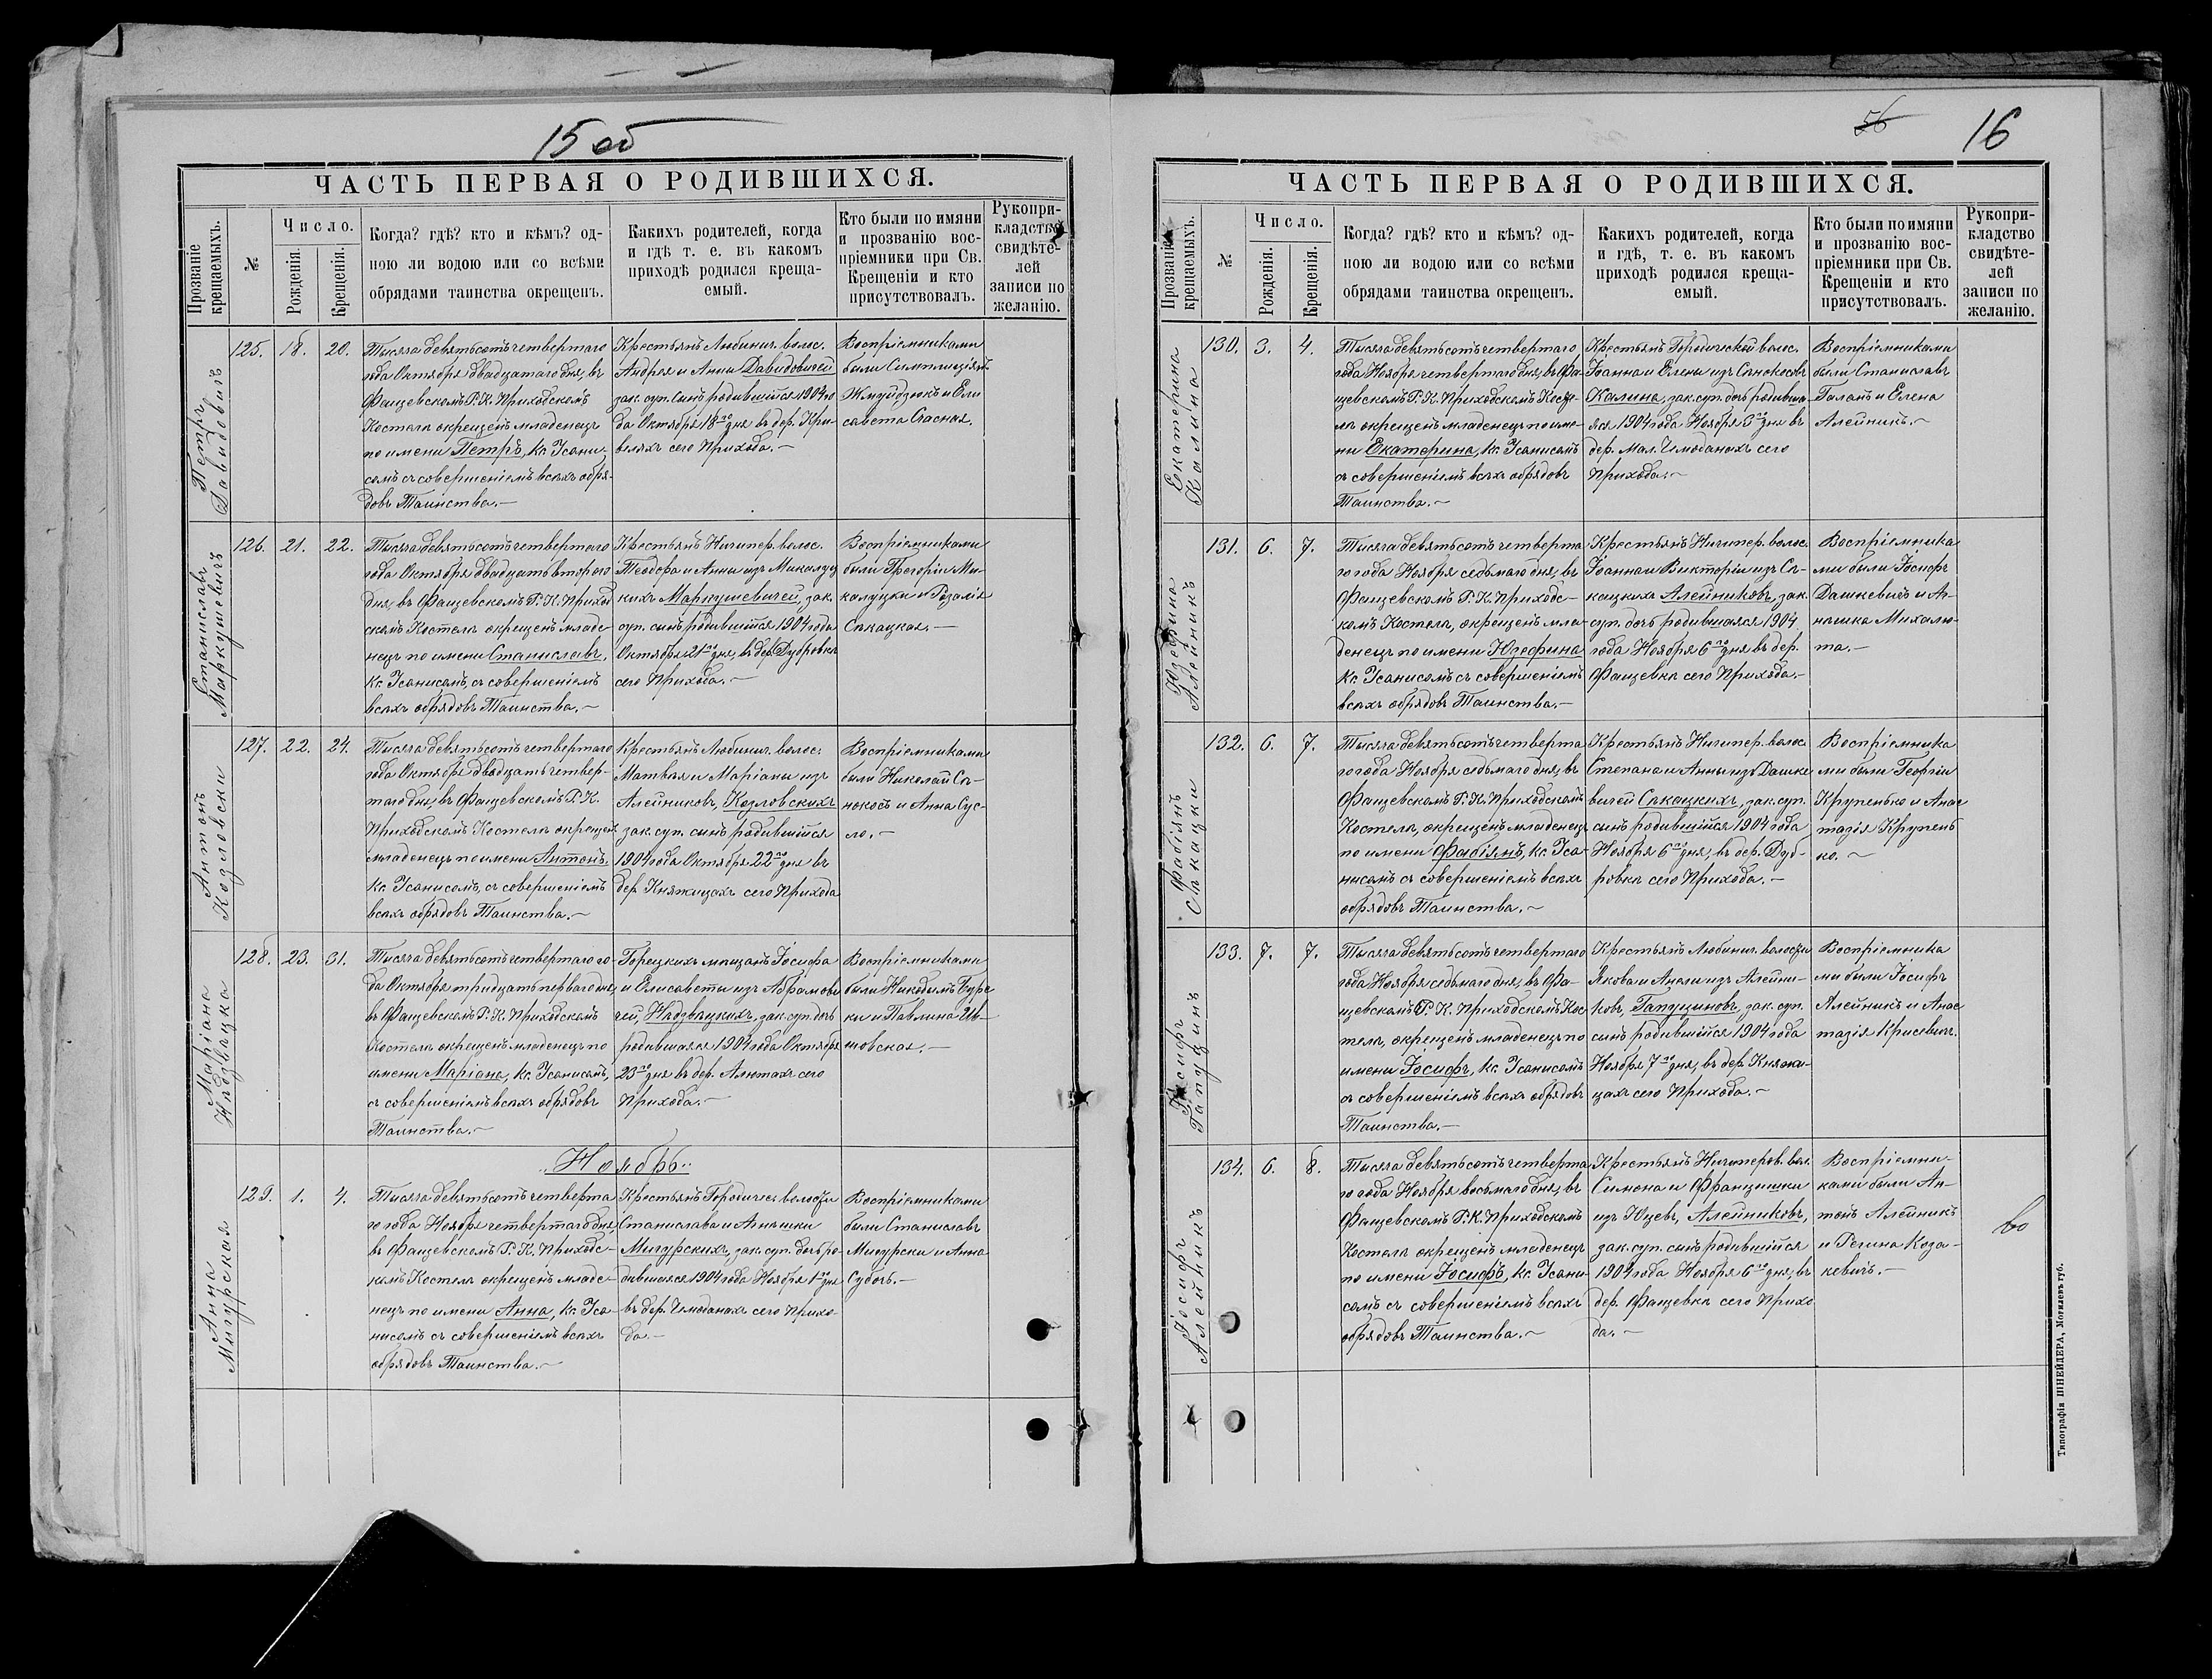 15 об
ЧАСТЬ ПЕРВАЯ О РОДИВШИХСЯ.
Прозваніе крещаемыхъ.
№
Число.
Рожденія.
Крещенія.
Когда? гдѣ? кто и кѣмъ? од-
ною ли водою или со всѣми
обрядами таинства окрещенъ.
Какихъ родителей, когда
и гдѣ т. е. въ какомъ
приходѣ родился креща-
емый.
Кто были по имяни
и прозванію вос-
пріемники при Св.
Крещеніи и кто
присутствовалъ.
Рукопри-
кладство
свидѣте-
лей
записи по
желанію.
Петръ
Давидовичъ
125. 18. 20.
Тысяча девятьсотъ четвертаго
года Октября двадцатаго дня, въ
Фащевскомъ Р. К. Приходскомъ
Костелѣ окрещенъ младенецъ
по имени Петръ, Кс. Усани-
сомъ съ совершеніемъ всѣхъ обря-
довъ Таинства.—
Крестьянъ Любинич. волос.
Андрея и Анны Давидовичей
зак. суп. сынъ родившійся 1904 го
да Октября 18го дня въ дер. Кри-
веляхъ сего Прихода.—
Воспріемниками
были Симплиціянъ
Жмуйдзюкъ и Ели
савета Спасная.
Станиславъ
Маркушевичъ
126. 21. 22.
Тысяча девятьсотъ четвертаго
года Октября двадцать втораго
дня, въ Фащевскомъ Р. К. Приход
скомъ Костелѣ окрещенъ младе-
нецъ по имени Станиславъ,
Кс. Усанисомъ, съ совершеніемъ
всѣхъ обрядовъ Таинства.—
Крестьянъ Ничипер. волос.
Теодора и Анны изъ Микалуц
кихъ Маркушевичей, зак.
суп. сынъ родившійся 1904 года
Октября 21го дня, въ дер. Дубровкѣ
сего Прихода.—
Воспріемниками
были Григорій Ми-
калуцки и Розалія
Сѣкацкая.—
Антонъ
Козловски
127. 22. 24.
Тысяча девятьсотъ четвертаго
года Октября двадцать четвер-
таго дня, въ Фащевскомъ Р. К.
Приходскомъ Костелѣ окрещенъ
младенецъ по имени Антонъ
Кс. Усанисомъ, съ совершеніемъ
всѣхъ обрядовъ Таинства.—
Крестьянъ Любинич. волос.
Матвѣя и Маріаны изъ
Алейниковъ, Козловскихъ
зак. суп. сынъ родившійся
1904 года Октября 22го дня въ
дер. Княжицахъ сего Прихода
Воспріемниками
были Николай Сѣ-
нокосъ и Анна Сус-
ло.—
Маріана
Надзвѣцка
128. 23. 31.
Тысяча девятьсотъ четвертаго го-
да Октября тридцать перваго дня,
въ Фащевскомъ Р. К. Приходскомъ
Костелѣ окрещенъ младенецъ по
имени Маріана, Кс. Усанисомъ,
съ совершеніемъ всѣхъ обрядовъ
Таинства.—
Горецкихъ мѣщанъ Іосифа
и Елисаветы изъ Абрамови
чей, Надзвѣцкихъ, зак. суп. дочь
родившаяся 1904 года Октября
23го дня въ дер. Алютахъ сего
Прихода.—
Воспріемниками
были Никодимъ Бурс
ки и Павлина Ив-
новская.—
..Ноябрь..
Анна
Мигурская
129. 1. 4.
Тысяча девятьсотъ четверта
го года Ноября четвертаго дня,
въ Фащевскомъ Р. К. Приходс-
комъ Костелѣ окрещенъ младе-
нецъ по имени Анна, Кс. Уса-
нисомъ съ совершеніемъ всѣхъ
обрядовъ Таинства.—
Крестьянъ Городичс. волости
Станислава и Агнѣшки
Мигурскихъ, зак. суп. дочь ро-
дившаяся 1904 года Ноября 1го дня
въ дер. Чемоданахъ сего Прихо-
да.—
Воспріемниками
были Станиславъ
Мигурски и Анна
Судочь.—
56
16
ЧАСТЬ ПЕРВАЯ О РОДИВШИХСЯ.
Прозваніе крещаемыхъ.
№
Число.
Рожденія.
Крещенія.
Когда? гдѣ? кто и кѣмъ? од-
ною ли водою или со всѣми
обрядами таинства окрещенъ.
Какихъ родителей, когда
и гдѣ, т. е. въ какомъ
приходѣ родился креща-
емый.
Кто были по имяни
и прозванію вос-
пріемники при Св.
Крещеніи и кто
присутствовалъ.
Рукопри-
кладство
свидѣте-
лей
записи по
желанію.
Екатерина
Калина
130. 3. 4.
Тысяча девятьсотъ четвертаго
года Ноября четвертаго дня, въ Фа-
щевскомъ Р. К. Приходскомъ Косте-
лѣ окрещенъ младенецъ по име-
ни Екатерина, Кс. Усанисомъ
съ совершеніемъ всѣхъ обрядовъ
Таинства.—
Крестьянъ Городичской волос.
Іоанна и Елены изъ Сѣнокосовъ
Калина, зак. суп. дочь родивша-
яся 1904 года Ноября 3го дня въ
дер. Мал. Чемоданахъ сего
Прихода.—
Воспріемниками
были Станиславъ
Галанъ и Елена
Алейникъ.—
Юзефина
Алейникъ
131. 6. 7.
Тысяча девятьсотъ четверта
го года Ноября седьмаго дня, въ
Фащевскомъ Р. К. Приходс-
комъ Костелѣ, окрещенъ мла-
денецъ по имени Юзефина
Кс. Усанисомъ съ совершеніемъ
всѣхъ обрядовъ Таинства.—
Крестьянъ Ничипер. волос.
Іоанна и Викторіи изъ Сѣ-
кацкихъ Алейниковъ, зак.
суп. дочь родившаяся 1904
года Ноября 6го дня въ дер.
Фащевка сего Прихода.—
Воспріемника
ми были Іосифъ
Дашкевичъ и Аг-
нѣшка Михалю-
та.—
Фабіянъ
Сѣкацки
132. 6. 7.
Тысяча девятьсотъ четверта
го года Ноября седьмаго дня, въ
Фащевскомъ Р. К. Приходскомъ
Костелѣ, окрещенъ младенецъ
по имени Фабіянъ, Кс. Уса-
нисомъ съ совершеніемъ всѣхъ
обрядовъ Таинства.—
Крестьянъ Ничипер. волос.
Степана и Анны изъ Дашке
вичей Сѣкацкихъ, зак. суп.
сынъ родившійся 1904 года
Ноября 6го дня, въ дер. Дуб-
ровкѣ сего Прихода.—
Воспріемника
ми были Георгій
Крупенько и Анас
тазія Крупень
ко.—
Іосифъ
Гапуцинъ
133. 7. 7.
Тысяча девятьсотъ четвертаго
года Ноября седьмаго дня, въ Фа-
щевскомъ Р. К. Приходскомъ Кос
телѣ, окрещенъ младенецъ по
имени Іосифъ, Кс. Усанисомъ
съ совершеніемъ всѣхъ обрядовъ
Таинства.—
Крестьянъ Любинич. волости
Якова и Анели изъ Алейни-
ковъ, Гапуциновъ, зак. суп.
сынъ родившійся 1904 года
Ноября 7го дня, въ дер. Княжи-
цахъ сего Прихода.—
Воспріемника
ми были Іосифъ
Алейникъ и Анас
тазія Крисевичъ.
Іосифъ
Алейникъ
134. 6. 8.
Тысяча девятьсотъ четверта
го года Ноября восьмаго дня, въ
Фащевскомъ Р. К. Приходскомъ
Костелѣ окрещенъ младенецъ
по имени Іосифъ, Кс. Усани
сомъ съ совершеніемъ всѣхъ
обрядовъ Таинства.—
Крестьянъ Ничиперов. вол.
Симона и Францишки
изъ Юцевъ, Алейниковъ,
зак. суп. сынъ родившійся
1904 года Ноября 6го дня, въ
дер. Фащевка сего Прихо
да.—
Воспріемни-
ками были Ан-
тонъ Алейникъ
и Регина Коза-
кевичъ.—
Типографія ШНЕЙДЕРА, Могилевъ губ.